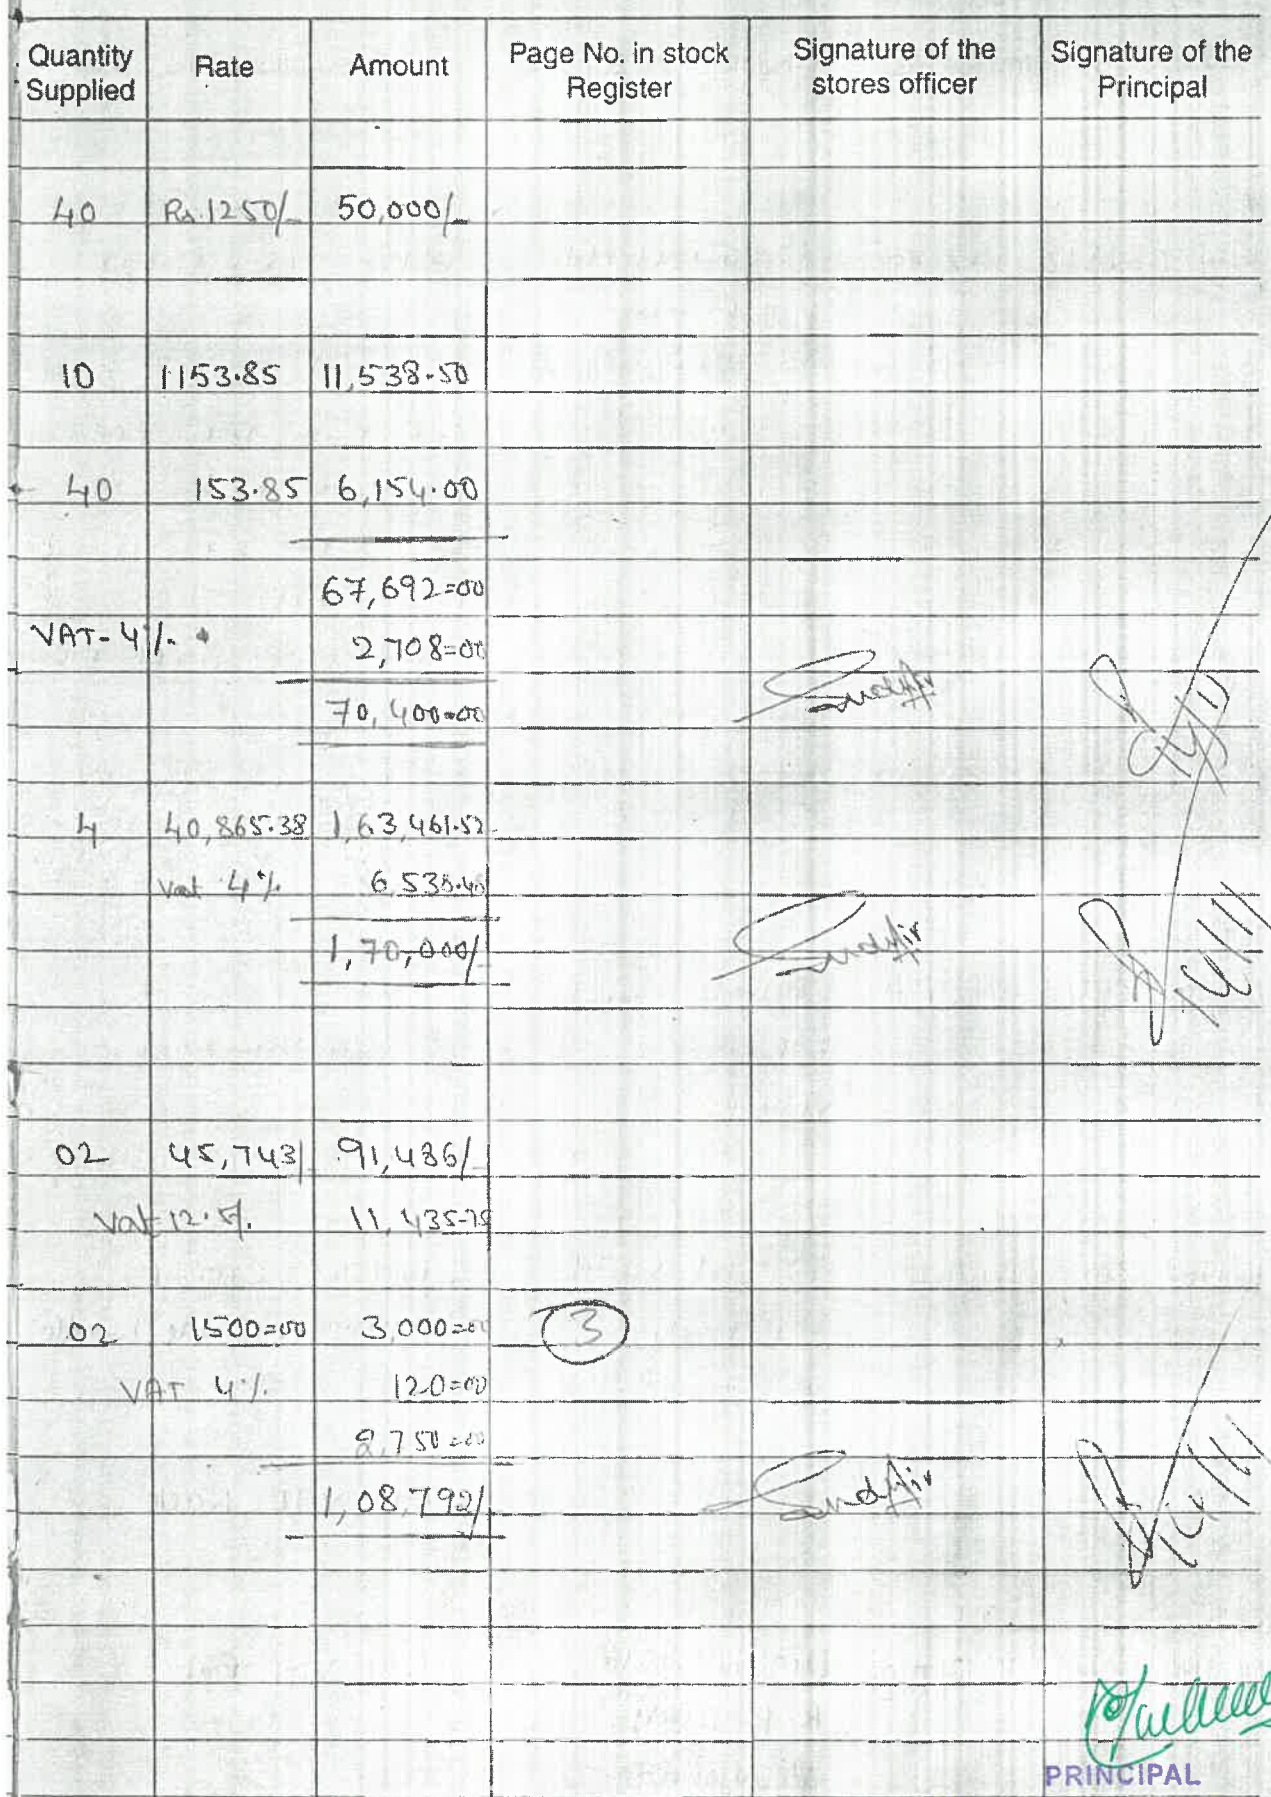 Quantity Supplied Rate Amount Page No. in stock Register Signature of the stores officer Signature of the Principal
40 Rs.1250/- 50,000/-
10 1153.85 11,538.50
40 153.85 6,154.00
67,692=00
VAT-4%. 2,708=00
70,400=00
4 40,865.38 1,63,461.52
Vat 4%
1,70,000/-
02 45,743/ 91,486/-
Vat 12.5%. 11,435-75
02 1500=00 3,000=00 3
VAT 4%. 120=00
2,750=00
1,08,792/-
PRINCIPAL